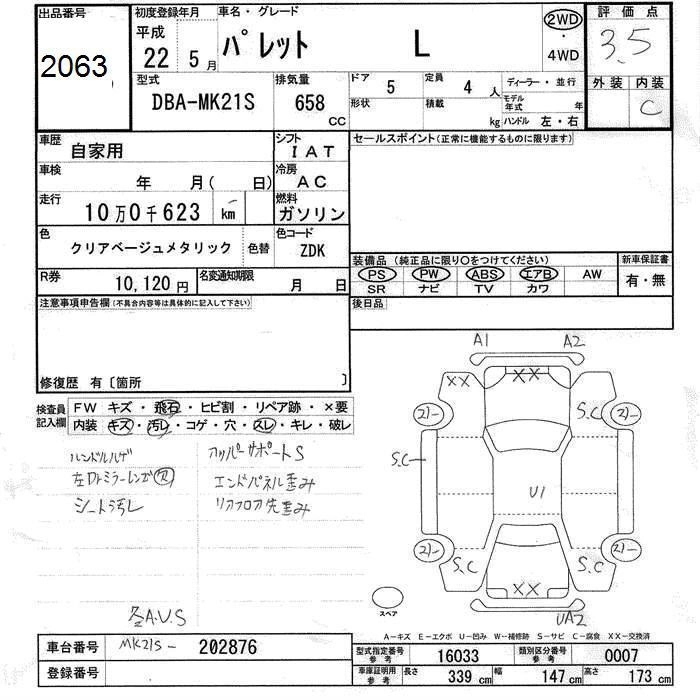 出品番号
2063
初度登録年月
平成
22 5月
車名・グレード
パレット L
2WD
・
4WD
評価点
3.5
型式
DBA-MK21S
排気量
658
CC
ドア 5
定員 4人
ディーラー・並行
形状
積載 kg
モデル年式 年
ハンドル 左・右
外装 内装
C
車歴
自家用
シフト
IAT
セールスポイント(正常に機能するものに限ります)
車検
年 月( 日)
冷房
AC
走行
10万0千623 km
燃料
ガソリン
色
クリアベージュメタリック
色替
色コード
ZDK
装備品(純正品に限り○をつけてください)
新車保証書
PS PW ABS エアB AW
有・無
SR ナビ TV カワ
R券
10,120円
名変通知期限
月 日
後日品
注意事項申告欄(不具合内容等は具体的に記入して下さい)
修復歴 有〔箇所 〕
検査員記入欄
FW キズ・飛石・ヒビ割・リペア跡・×要
内装 キズ・汚レ・コゲ・穴・スレ・キレ・破レ
ハンドルハゲ
左ドアミラーレンズ欠
シート汚レ
アッパーサポートS
エンドパネル歪み
リアフロア先歪み
各A.U.S
A1 A2
XX XX
S.C
21- 21-
S.C
U1
21- 21-
S.C S.C
XX
UA2
スペア
A-キズ E-エクボ U-凹み W-補修跡 S-サビ C-腐食 XX-交換済
車台番号
MK21S- 202876
登録番号
型式指定番号
参考
16033
類別区分番号
参考
0007
車庫証明用
参考
長さ 339 cm
幅 147 cm
高さ 173 cm